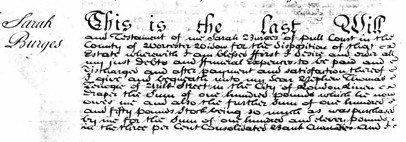 Sarah
Burges
This is the last Will
and Testament of me Sarah Burges of Pull Court in the
County of Worcester Widow for the disposition of that
Estate wherewith I am blessed first I desire and order all
my just Debts and funeral Expences to be paid and
discharged and after payment and satisfaction thereof
I give and bequeath unto my dear Nephew Thomas
of Milk Street in the City of London Linen
Draper the Sum of one hundred pounds which he now
owes me and also the further Sum of one hundred
and fifty pounds Stock being so much as was purchased
by me for the Sum of one hundred and eleven pounds
in the three per Cent Consolidated Bank Annuities and